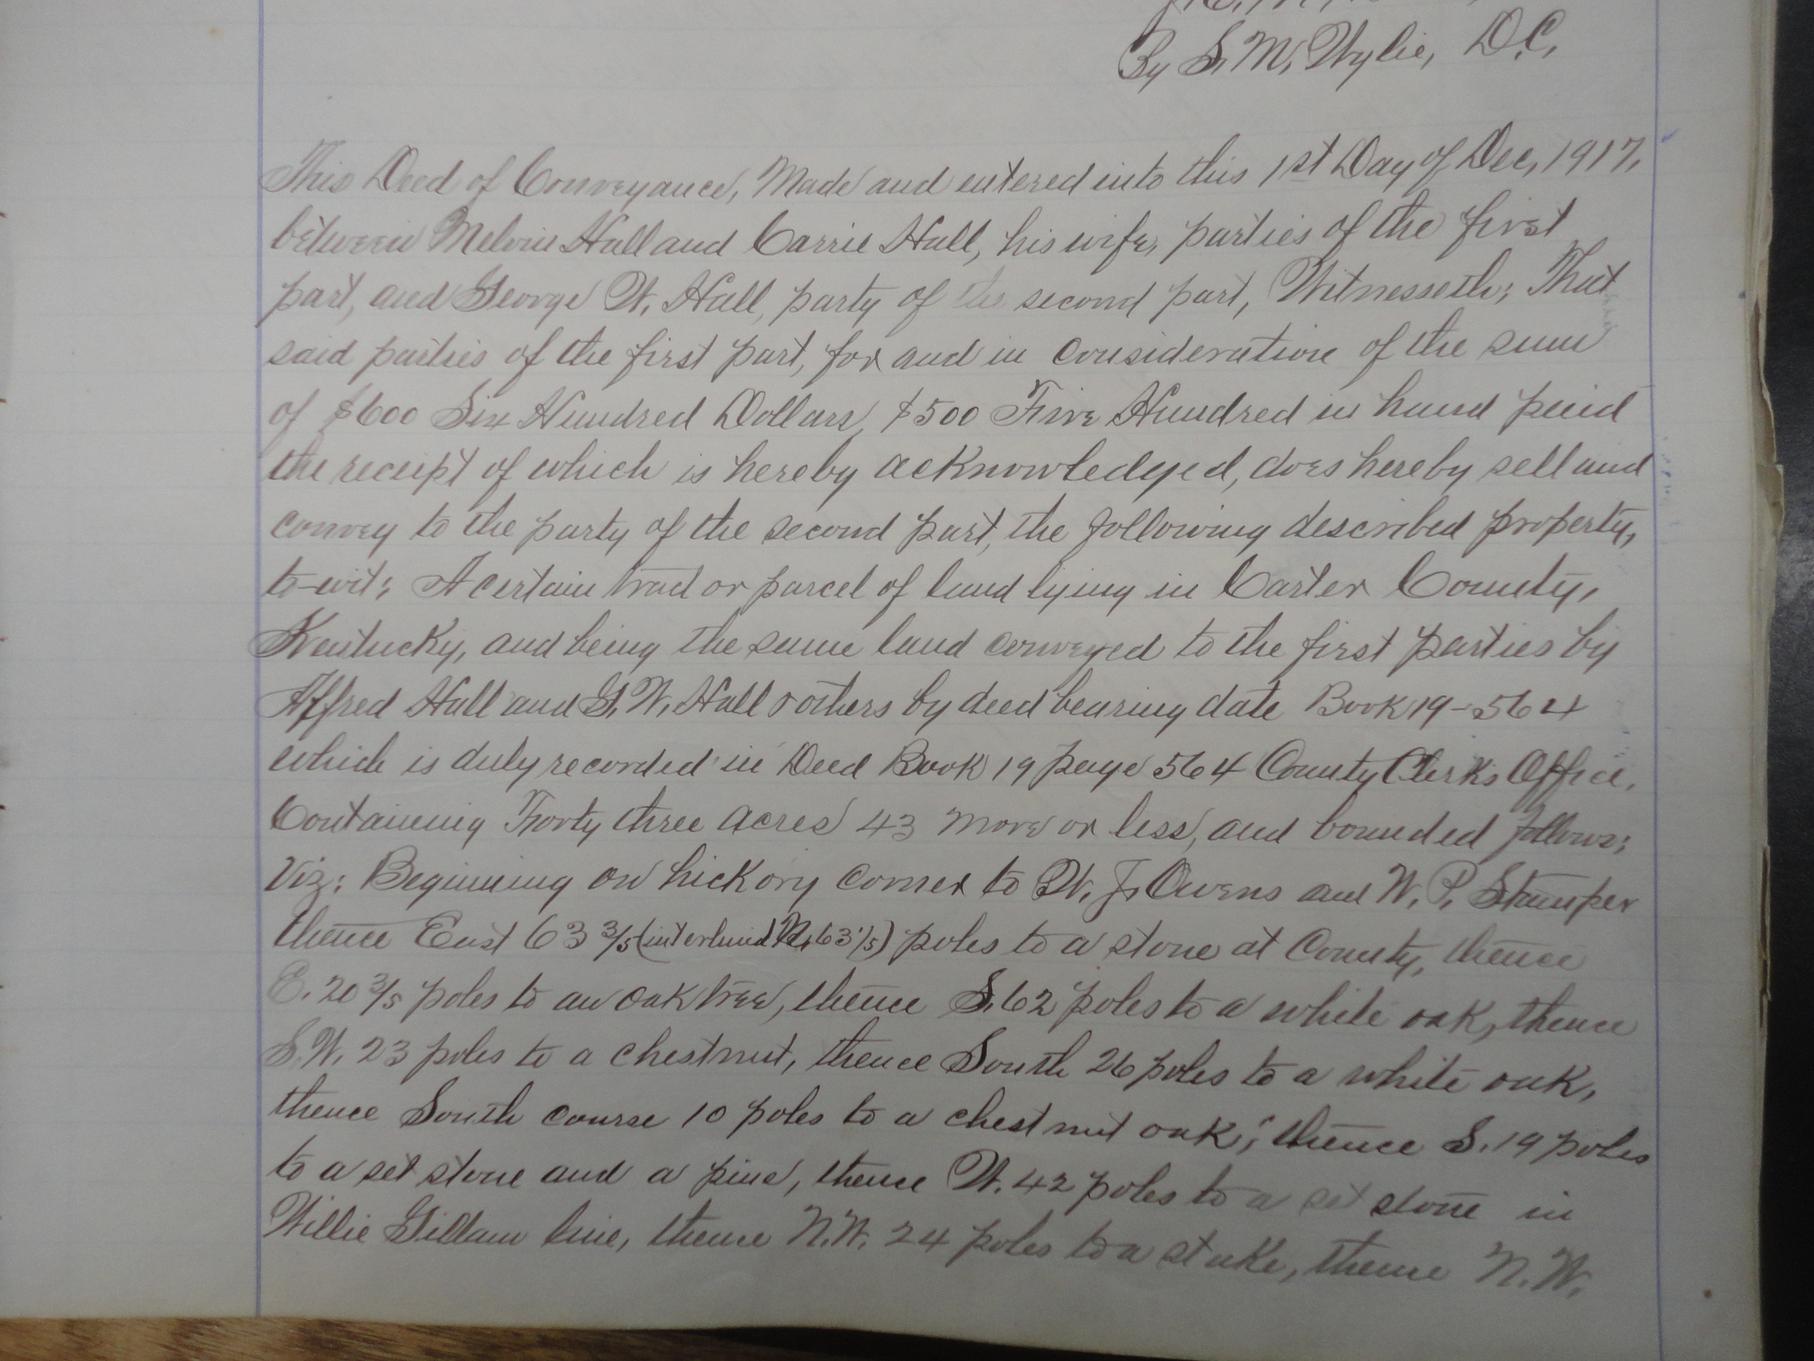 By S. M. Wylie, D.C.
This Deed of Conveyance, Made and entered into this 1st Day of Dec, 1917,
between Melvin Hall and Carrie Hall, his wife, parties of the first
part, and George W. Hall, party of the second part, Witnesseth; That
said parties of the first part, for and in consideration of the sum
of $600 Six Hundred Dollars, $500 Five Hundred in hand paid
the receipt of which is hereby acknowledged, does hereby sell and
convey to the party of the second part, the following described property,
to-wit; A certain trad or parcel of land lying in Carter County,
Kentucky, and being the same land conveyed to the first parties by
Alfred Hall and G. W. Hall & others by deed bearing date Book 19-564
which is duly recorded in Deed Book 19 page 564 County Clerks Office,
Containing Forty three acres 43 more or less, and bounded follows;
Viz; Beginning on hickory corner to W. J. Owens and W. P. Stamper
thence East 63 3/5 (interlined N. 63 1/5) poles to a stone at County, thence
E. 20 3/5 poles to an oak tree, thence S. 62 poles to a white oak, thence
S.W. 23 poles to a chestnut, thence South 26 poles to a white oak,
thence South course 10 poles to a chestnut oak; thence S. 19 poles
to a set stone and a pine, thence W. 42 poles to a set stone in
Willie Gillam line, thence N.W. 24 poles to a stake, thence N.W.